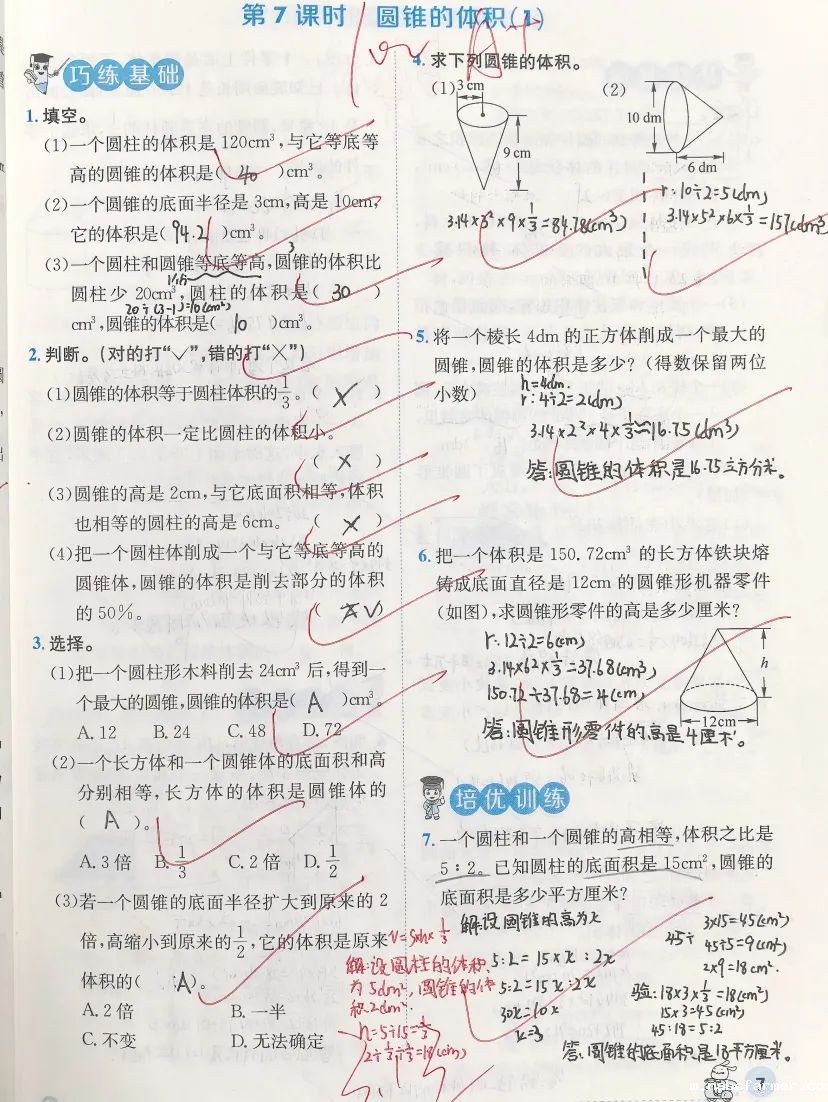 第7课时 圆锥的体积(1)
巧练基础
1.填空。
(1)一个圆柱的体积是120cm³,与它等底等
高的圆锥的体积是( 40 )cm³。
(2)一个圆锥的底面半径是3cm,高是10cm,
它的体积是( 94.2 )cm³。
(3)一个圆柱和圆锥等底等高,圆锥的体积比
圆柱少 20cm³,圆柱的体积是( 30 )
20÷(3-1)=10(cm³)
cm³,圆锥的体积是( 10 )cm³。
2.判断。(对的打“✓”,错的打“×”)
(1)圆锥的体积等于圆柱体积的1/3。( × )
(2)圆锥的体积一定比圆柱的体积小。
( × )
(3)圆锥的高是2cm,与它底面积相等,体积
也相等的圆柱的高是6cm。 ( × )
(4)把一个圆柱体削成一个与它等底等高的
圆锥体,圆锥的体积是削去部分的体积
的50%。 ( ✓ )
3.选择。
(1)把一个圆柱形木料削去24cm³后,得到一
个最大的圆锥,圆锥的体积是( A )cm³。
A.12 B.24 C.48 D.72
(2)一个长方体和一个圆锥体的底面积和高
分别相等,长方体的体积是圆锥体的
( A )。
A.3倍 B.1/3 C.2倍 D.1/2
(3)若一个圆锥的底面半径扩大到原来的2
倍,高缩小到原来的1/2,它的体积是原来
体积的( A )。
A.2倍 B.一半
C.不变 D.无法确定
4.求下列圆锥的体积。
(1) 3 cm
9 cm
3.14×3²×9×1/3=84.78(cm³)
(2)
10 dm
6 dm
r:10÷2=5(dm)
3.14×5²×6×1/3=157(dm³)
5.将一个棱长4dm的正方体削成一个最大的
圆锥,圆锥的体积是多少?(得数保留两位
小数)
h=4dm.
r:4÷2=2(dm)
3.14×2²×4×1/3≈16.75(dm³)
答:圆锥的体积是16.75立方分米。
6.把一个体积是150.72cm³的长方体铁块熔
铸成底面直径是12cm的圆锥形机器零件
(如图),求圆锥形零件的高是多少厘米?
r:12÷2=6(cm)
3.14×6²×1/3=37.68(cm²)
150.72÷37.68=4(cm)
h
12cm
答:圆锥形零件的高是4厘米。
培优训练
7.一个圆柱和一个圆锥的高相等,体积之比是
5:2。已知圆柱的底面积是15cm²,圆锥的
底面积是多少平方厘米?
解设圆锥的高为x
5:2=15×x:2x
5:2=15x:2x
30x=10x
x=3
3×15=45(cm³)
45÷5=9(cm³)
2×9=18cm².
验:18×3×1/3=18(cm³)
15×3=45(cm³)
45:18=5:2
答:圆锥的底面积是18平方厘米。
V=Sh×1/3
解:设圆柱的体积
为5dm³,圆锥的体
积2dm³
h=5÷15=1/3
2÷1/3÷1/3=18(cm)
7